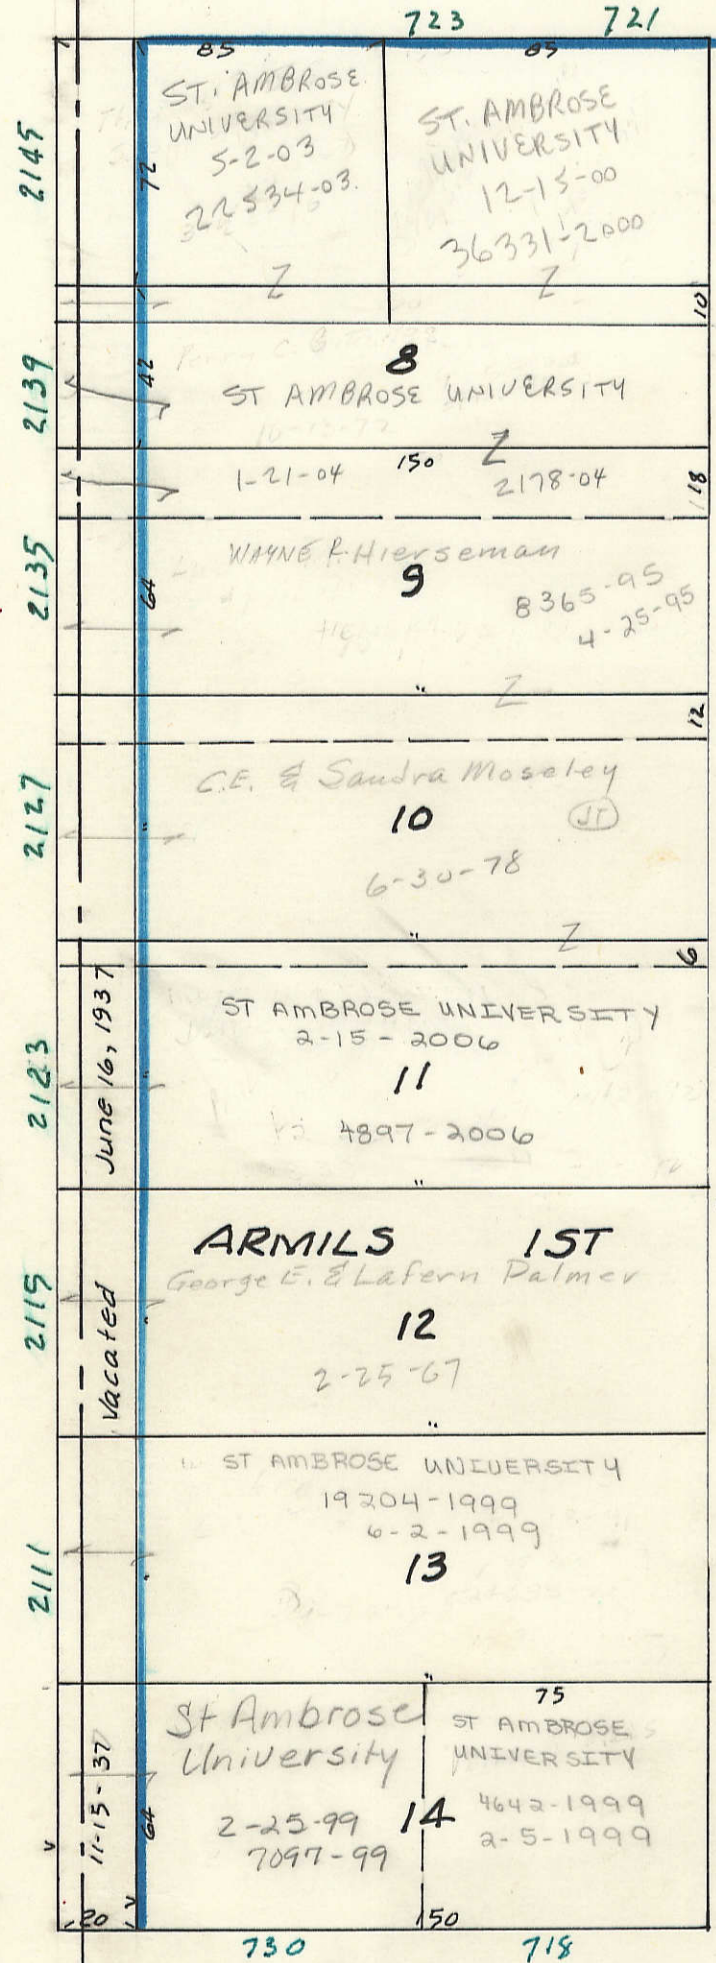 723 721
85 85
2145
72
ST. AMBROSE
UNIVERSITY
5-2-03
22534-03.
Z
ST. AMBROSE
UNIVERSITY
12-15-00
36331-2000
Z
10
2139
42
8
ST AMBROSE UNIVERSITY
Z
150
1-21-04 2178-04
18
2135
64
WAYNE R. Hierseman
9
8365-95
4-25-95
"
Z
12
2127
C.E. & Sandra Moseley
10
JT
6-30-78
"
"
Z
6
2123
June 16, 1937
ST AMBROSE UNIVERSITY
2-15-2006
11
4897-2006
"
"
2115
Vacated
ARMILS 1ST
George E. & Lafern Palmer
12
2-25-67
"
"
2111
ST AMBROSE UNIVERSITY
19204-1999
6-2-1999
13
"
"
11-15-37
64
St Ambrose
University
2-25-99
7097-99
14
75
ST AMBROSE
UNIVERSITY
4642-1999
2-5-1999
20
150
730 718